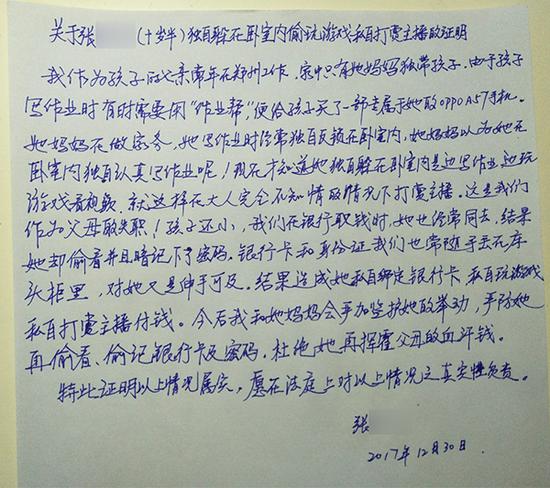 关于张 (十岁半)独自躲在卧室内偷玩游戏私自打赏主播的证明
我作为孩子的父亲常年在郑州工作,家中只有她妈妈独带孩子。由于孩子
写作业时有时需要用“作业帮”,便给孩子买了一部专属于她的OPPO A57手机。
她妈妈在做家务,她写作业时经常独自反锁在卧室内,她妈妈以为她在
卧室内独自认真写作业呢!现在才知道她独自躲在卧室内是边写作业边玩
游戏看视频,就这样在大人完全不知情的情况下打赏主播。这是我们
作为父母的失职!孩子还小,我们在银行取钱时,她也经常同去,结果
她却偷看并且暗记下了密码。银行卡和身份证我们也常随手丢在床
头柜里,对她又是伸手可及。结果造成她私自绑定银行卡私自玩游戏
私自打赏主播付钱。今后我和她妈妈会严加监护她的举动,严防她
再偷看、偷记银行卡及密码,杜绝她再挥霍父母的血汗钱。
特此证明以上情况属实,愿在法庭上对以上情况之真实性负责。
张
2017年12月30日.